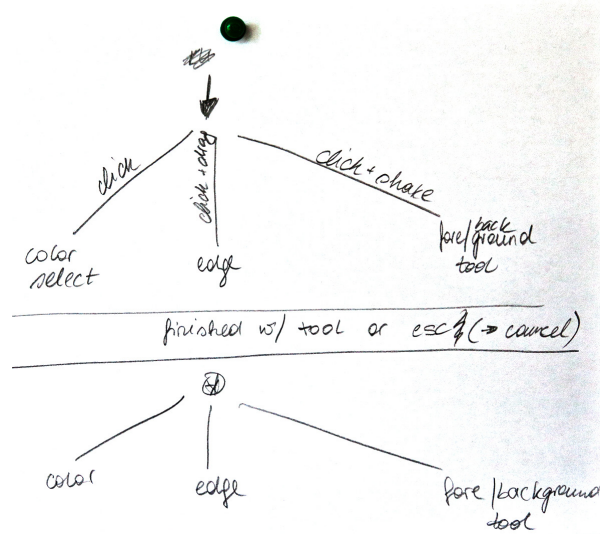 click
click + drag
click + shake
color
select
edge
fore/background
tool
finished w/ tool or esc (→ cancel)
color
edge
fore/background
tool